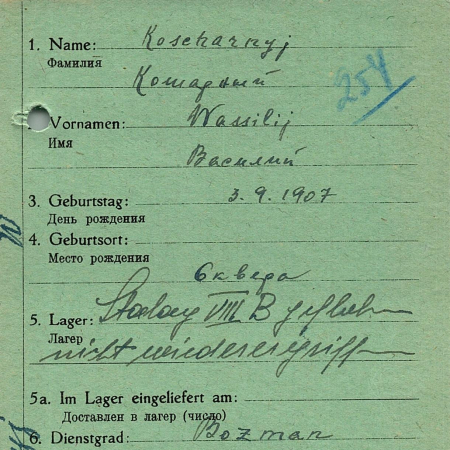 1. Name: Koscharnyj
Фамилия
Кошарный
254
Vornamen: Wassilij
Имя
Василий
3. Geburtstag: 3. 9. 1907
День рождения
4. Geburtsort:
Место рождения
Сквера
5. Lager: Stalag VIII B geflohen
Лагер
nicht wiederergriffen
5a. Im Lager eingeliefert am:
Доставлен в лагер (число)
6. Dienstgrad: